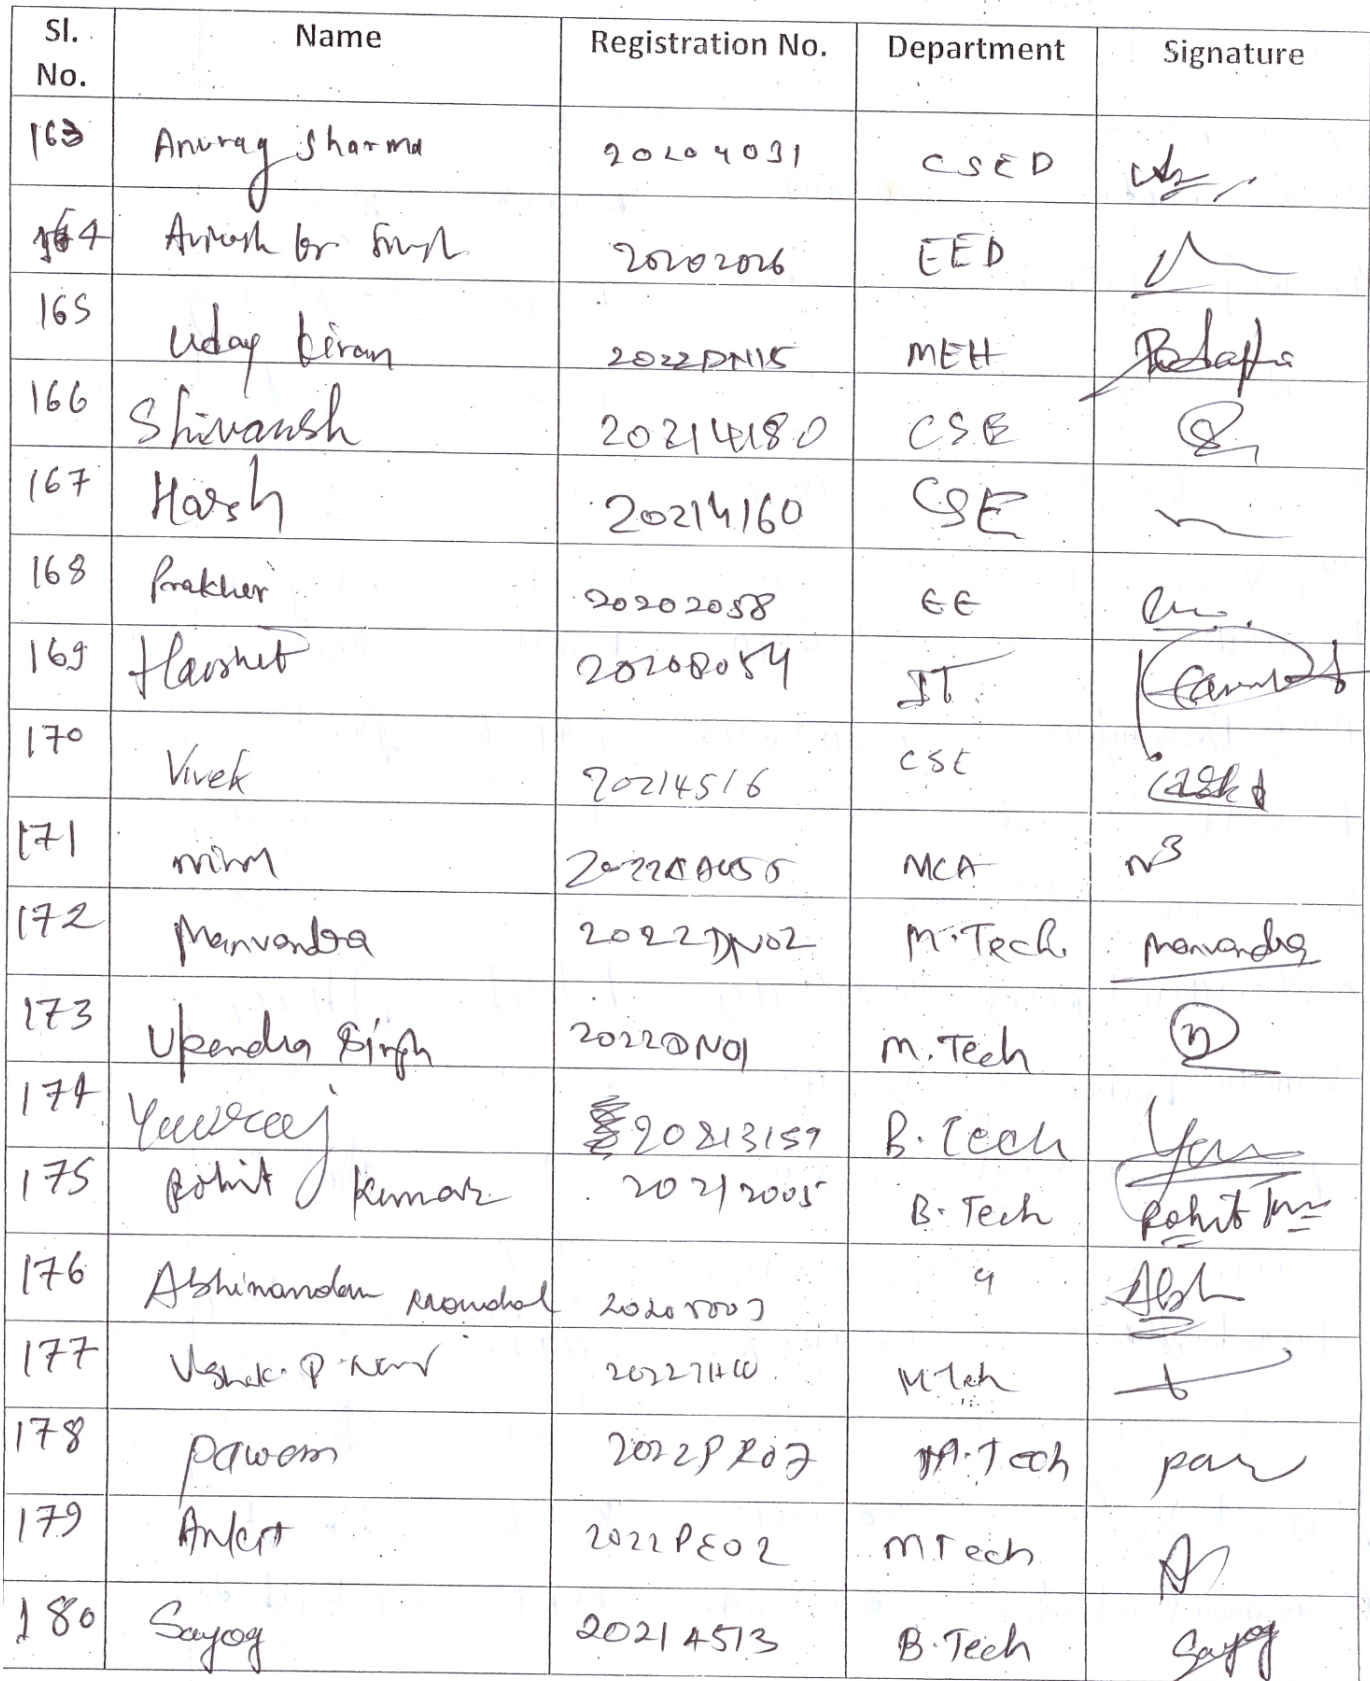 Sl. No. Name Registration No. Department Signature
163 Anurag Sharma 20204031 CSED
164 Singh 20202026 EED
165 Uday kiran 2022DN15 MEH
166 Shivansh 20214180 CSE
167 Harsh 20214160 CSE
168 Prakher 20202058 EE
169 Harshit 20208054 IT
170 Vivek 20214516 CSE
171 MCA
172 Manvendra 2022DN02 M.Tech. Manvendra
173 Upendra Singh 2022DN01 M.Tech
174 Yuvraj 20213159 B.Tech
175 Rohit Kumar 20212005 B.Tech Rohit
176 Abhinandan Mondal Abh
177 M.Tech
178 Pawan 2022PR07 M.Tech
179 Ankit 2022PE02 MTech
180 Sayog 20214513 B.Tech Sayog